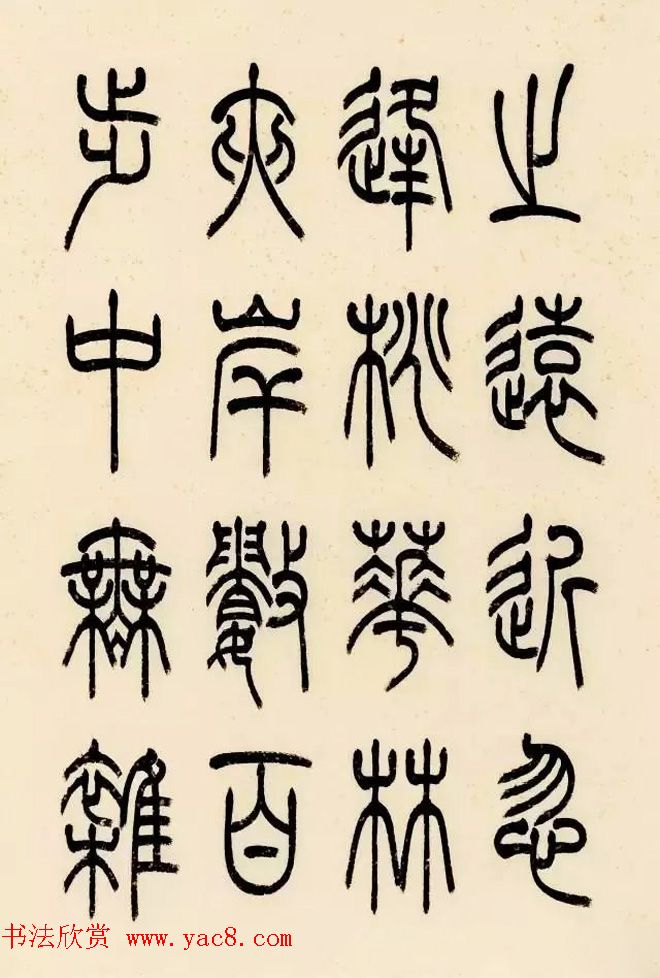 之遠近忽
逢桃華林
夾岸數百
步中無雜
书法欣赏 www.yac8.com